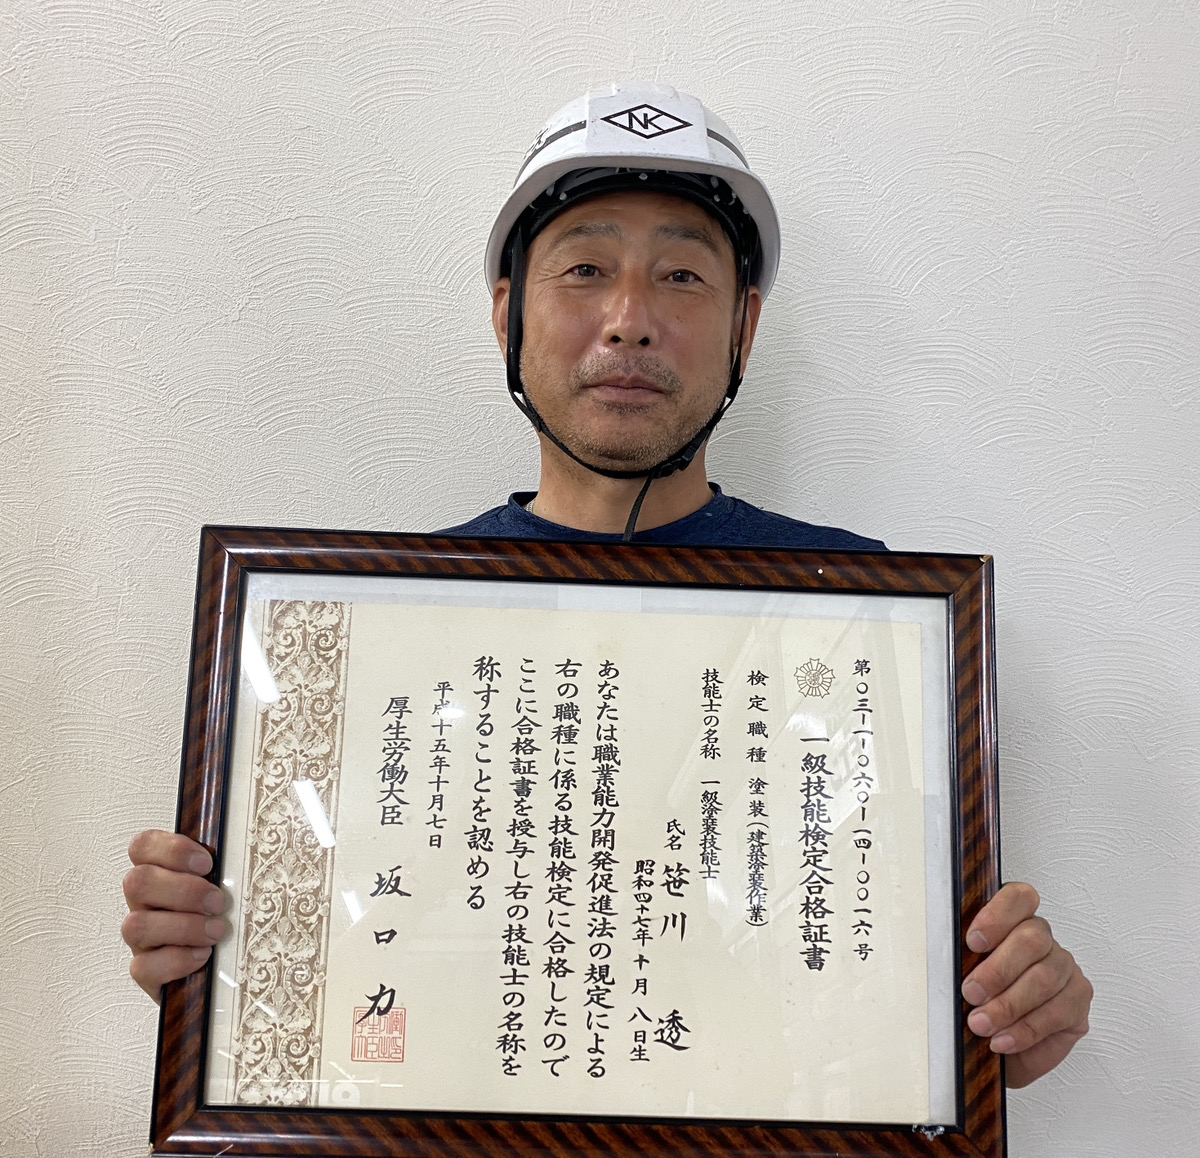 NK
第〇三一一〇六〇一一四一〇〇一六号
一級技能検定合格証書
検定職種 塗装(建築塗装作業)
技能士の名称 一級塗装技能士
氏名 笹川 透
昭和四十七年十月八日生
あなたは職業能力開発促進法の規定による
右の職種に係る技能検定に合格したので
ここに合格証書を授与し右の技能士の名称を
称することを認める
平成十五年十月七日
厚生労働大臣 坂口力